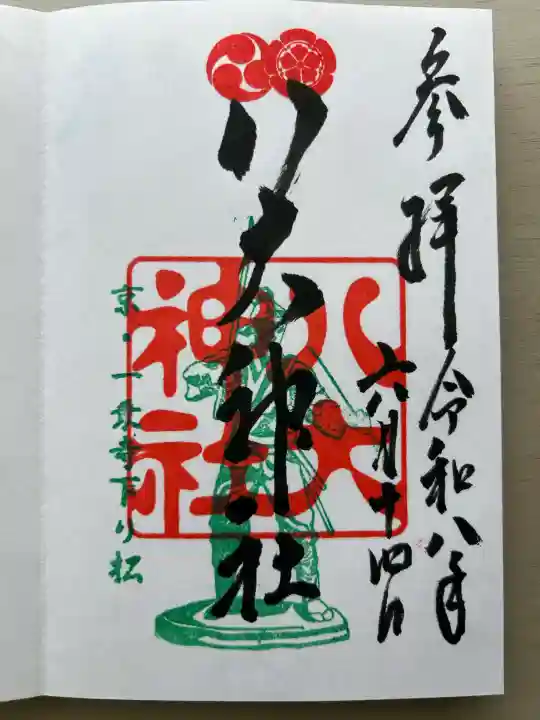 参拝 令和八年
六月十四日
八大神社
八大神社
京・一乗寺下り松